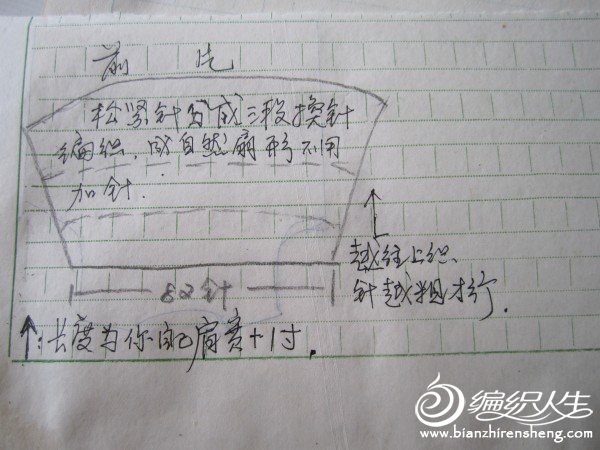 前片
松紧针分成三段换针
编织，成自然扇形不用
加针.
越往上织
针越粗才行.
82针
↑:长度为你的肩宽+1寸.
编织人生
www.bianzhirensheng.com